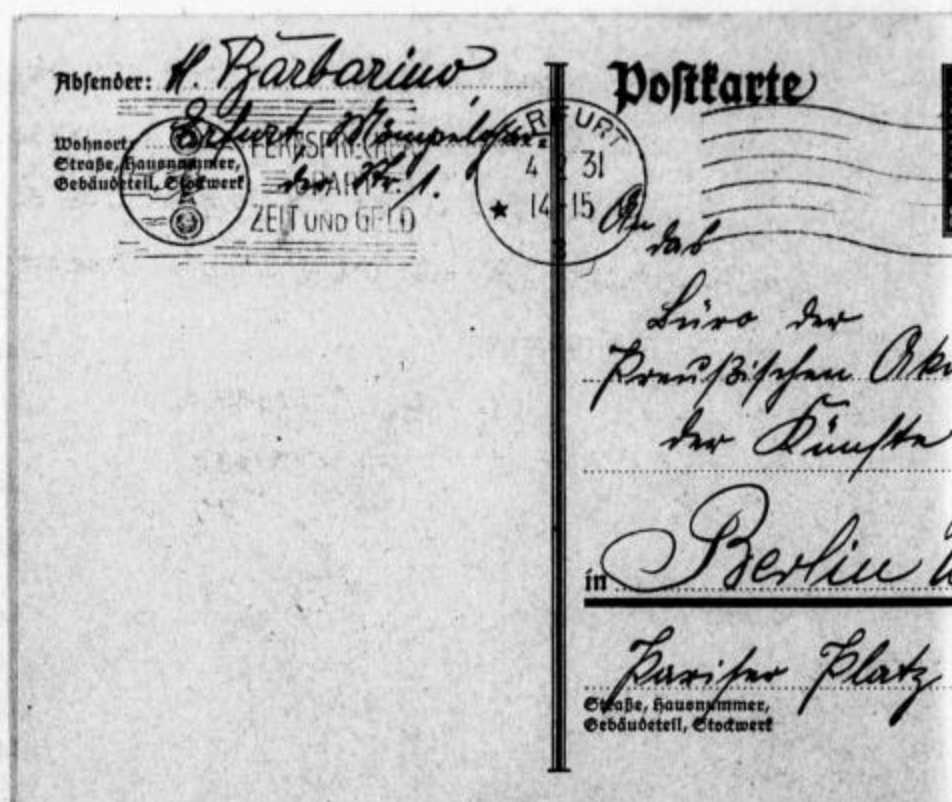 Absender: H. Barbarino
Wohnort,
Straße, Hausnummer,
Gebäudeteil, Stockwerk
Erfurt,
der Str. 1.
FERNSPRECHEN
SPART
ZEIT UND GELD
ERFURT
4 31
14-15
Postkarte
An
das
Büro der
Preußischen
der Künste
in Berlin
Pariser Platz
Straße, Hausnummer,
Gebäudeteil, Stockwerk